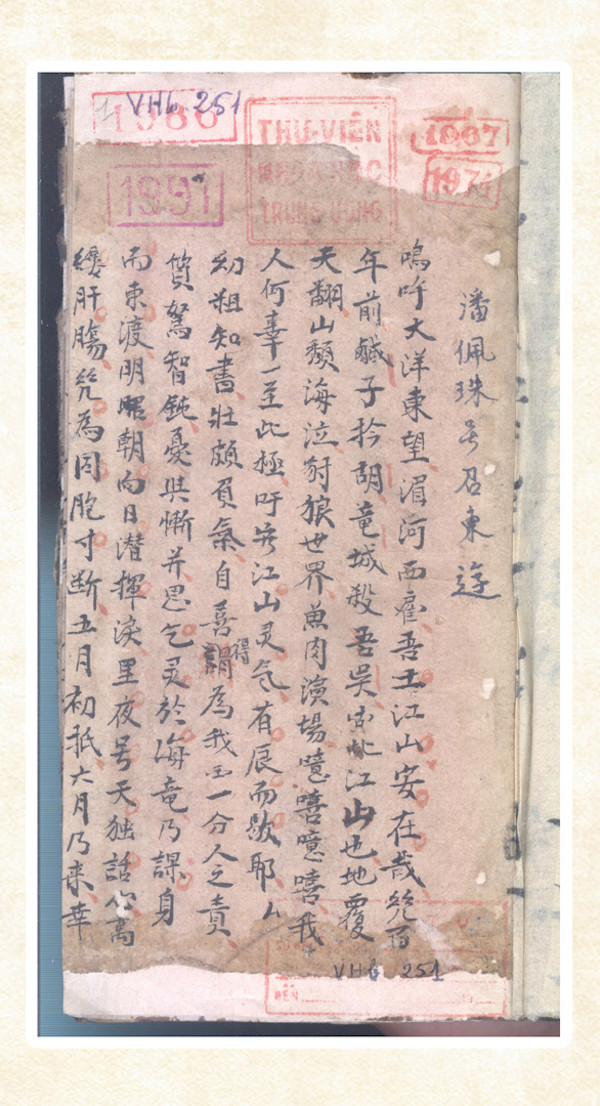 VHb 251
THƯ-VIỆN
KHOA HỌC
TRUNG ƯƠNG
1967
1991
潘佩珠号召東遊
嗚呼大洋東望湄河西雇吾土江山安在哉㡬百
年前鹹子衿胡竜城殺吾吳此江山也地覆
天翻山頽海泣豺狼世界魚肉演場噫嘻噫嘻我
人何辜一至此極吁江山灵气有辰而歇耶厶
幼粗知書壯頗負氣自喜謂得為我一分人之責
質駑智鈍憂與慚并思乞灵於海竜乃謀身
而東渡明朝向日潜揮淚里夜号天独話萬
縷肝腸㡬為同胞寸断五月初抵六月乃来幸
VHb 251